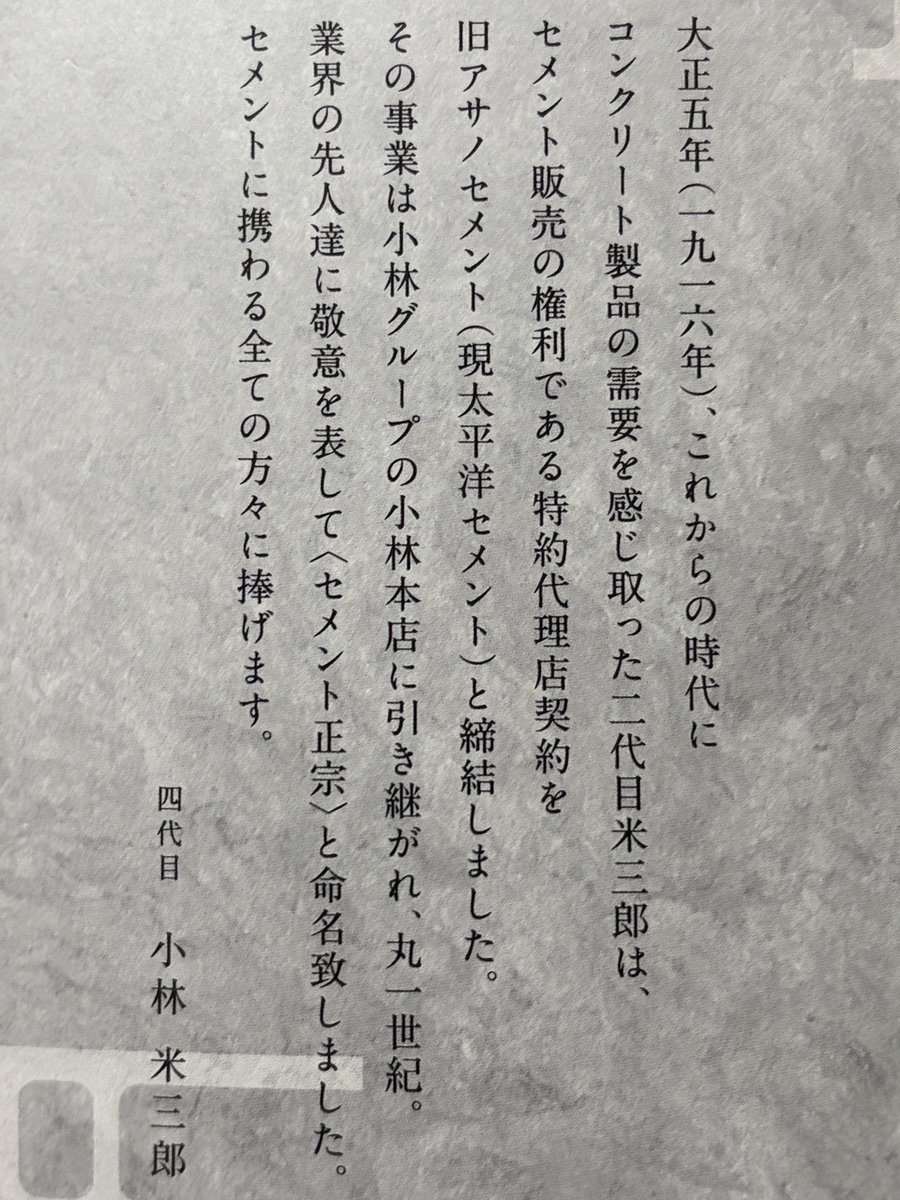 大正五年(一九一六年)、これからの時代に
コンクリート製品の需要を感じ取った二代目米三郎は、
セメント販売の権利である特約代理店契約を
旧アサノセメント(現太平洋セメント)と締結しました。
その事業は小林グループの小林本店に引き継がれ、丸一世紀。
業界の先人達に敬意を表して〈セメント正宗〉と命名致しました。
セメントに携わる全ての方々に捧げます。
四代目 小林 米三郎